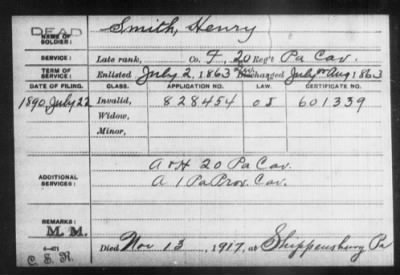 DEAD
NAME OF SOLDIER: Smith, Henry
SERVICE: Late rank, Co. F, 20 Reg't Pa Cav.
TERM OF SERVICE: Enlisted July 2, 1863 Discharged July or Aug 1863
DATE OF FILING. CLASS. APPLICATION NO. LAW. CERTIFICATE NO.
1890, July 22 Invalid, 828454 601339
Widow,
Minor,
ADDITIONAL SERVICES:
A & H 20 Pa Cav.
A 1 Pa Prov. Cav.
REMARKS:
M. M.
C. S. R.
Died Nov 13, 1917, at Shippensburg Pa